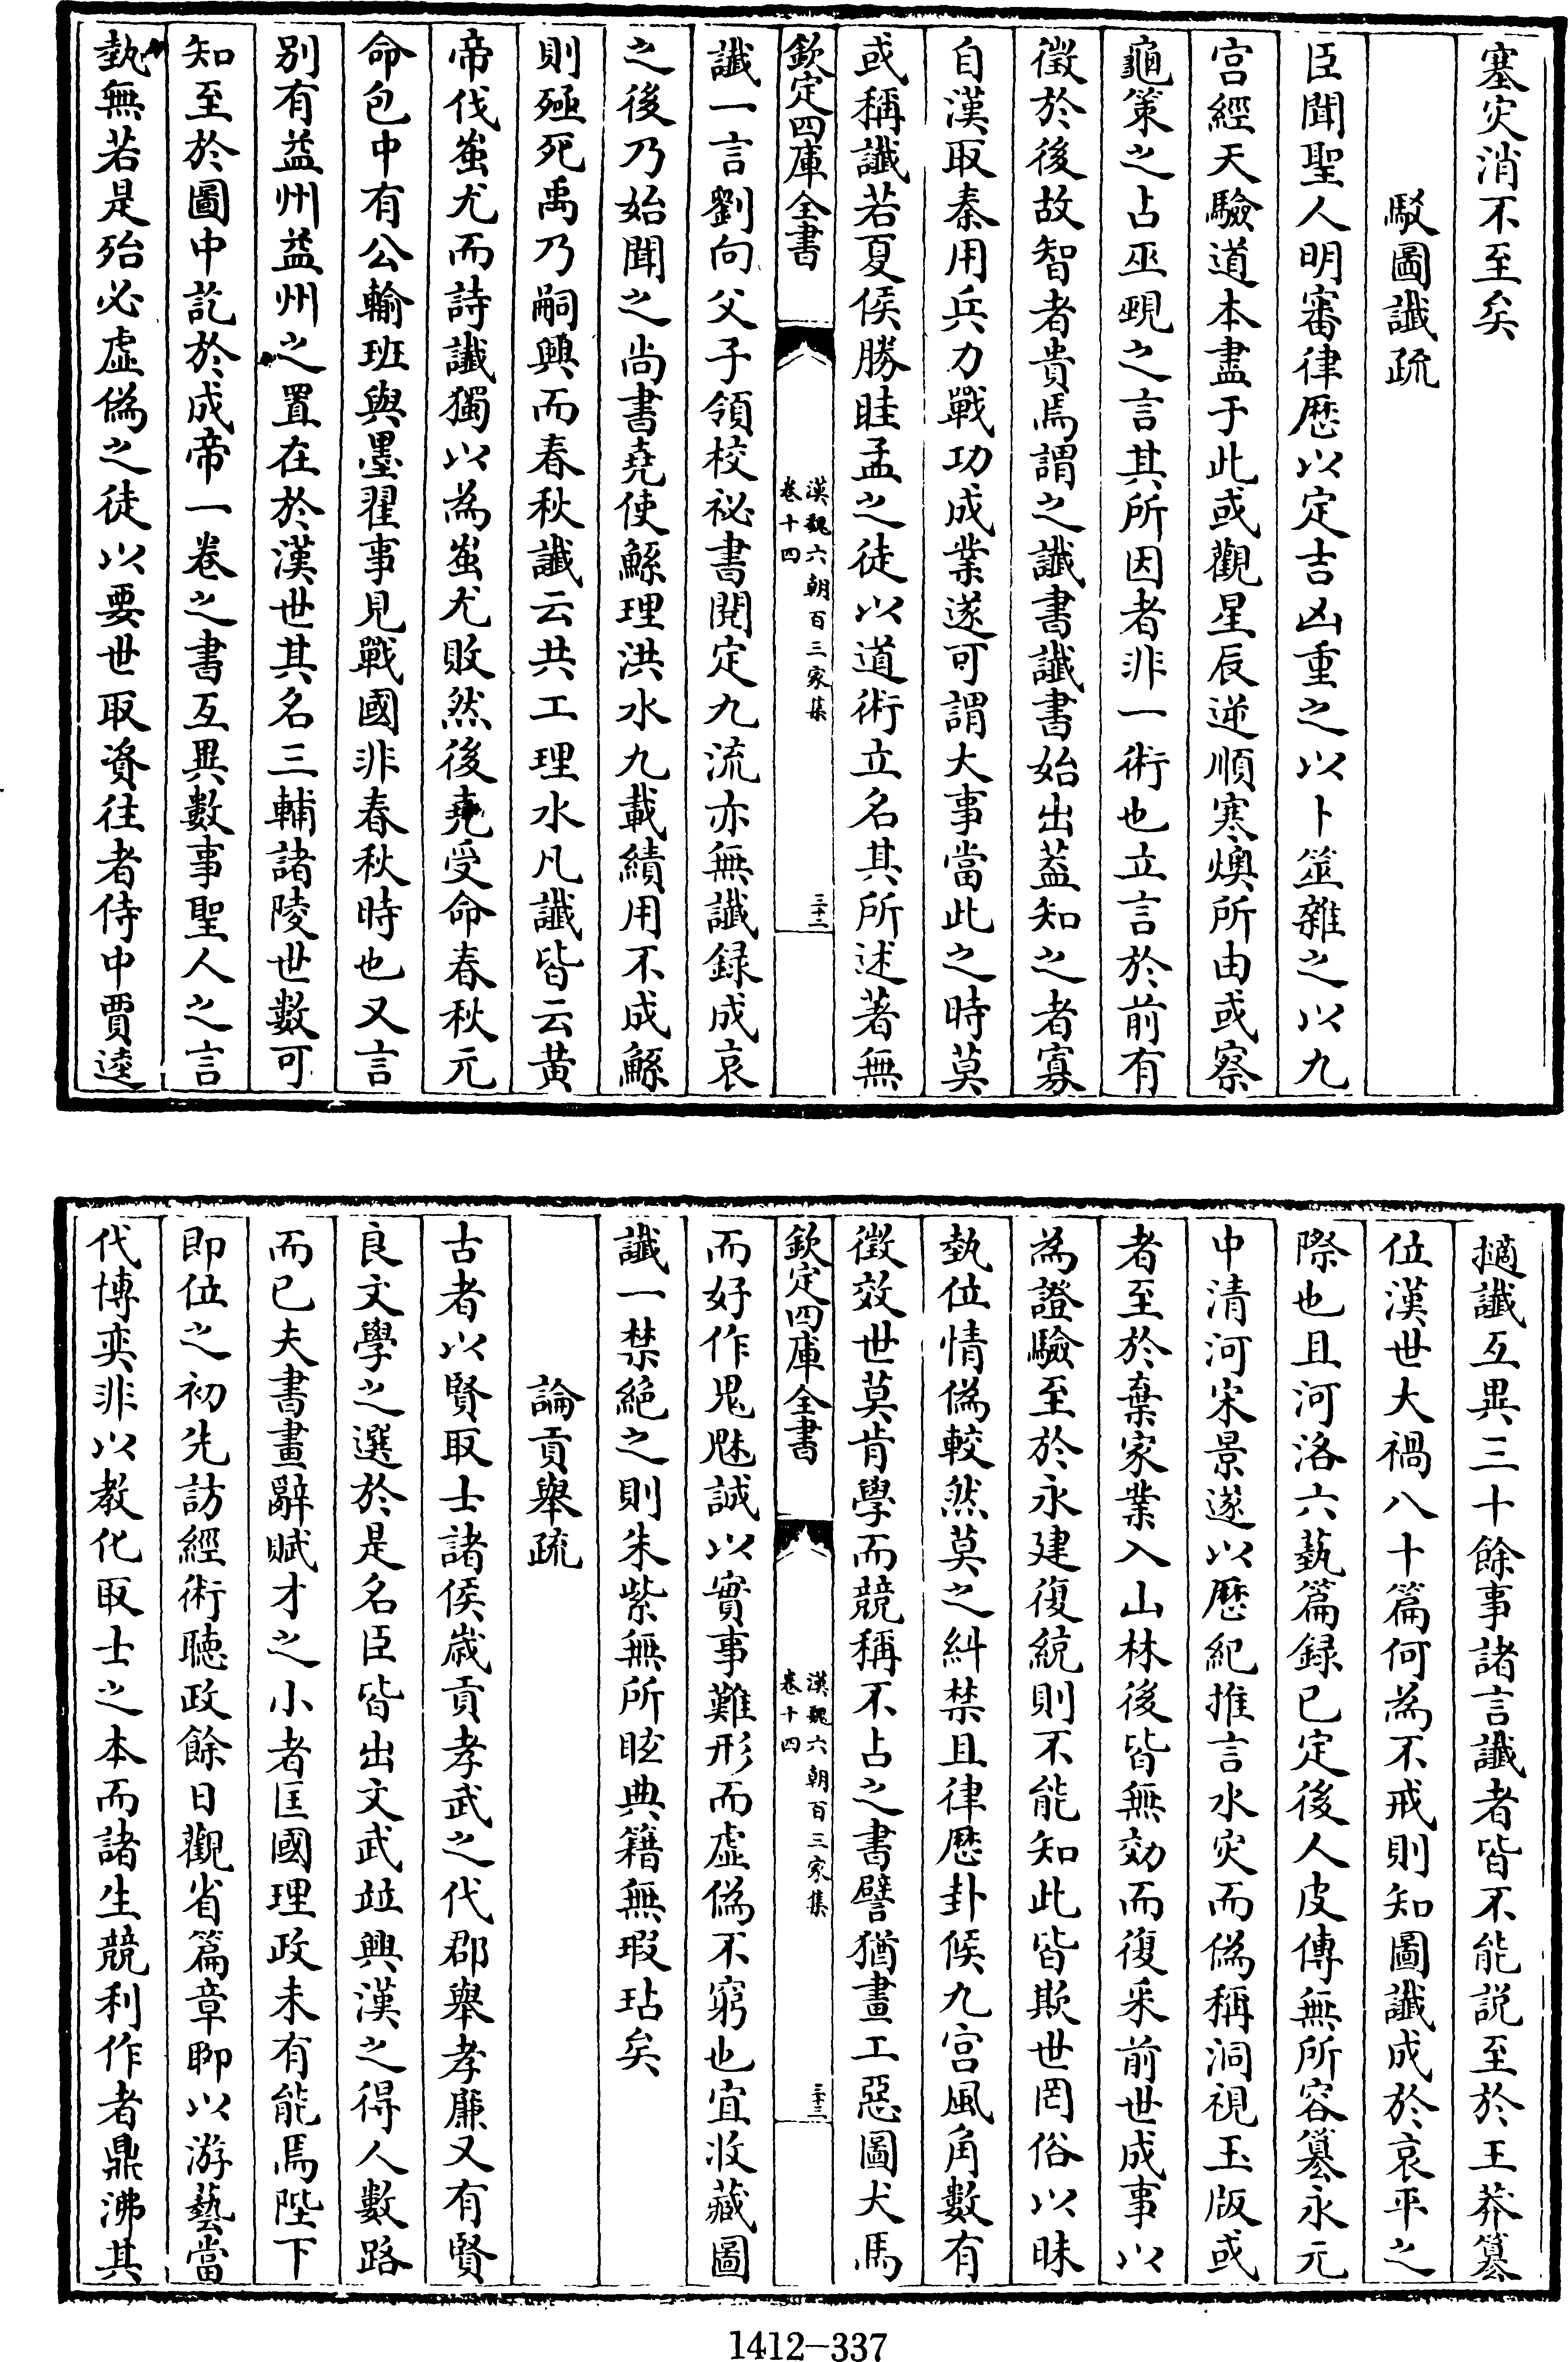 塞灾消不至矣
駁圖讖疏
臣聞聖人明審律厯以定吉凶重之以卜筮雜之以九
宫經天驗道本盡于此或觀星辰逆順寒燠所由或察
龜策之占巫覡之言其所因者非一術也立言於前有
徵於後故智者貴焉謂之讖書讖書始出葢知之者寡
自漢取秦用兵力戰功成業遂可謂大事當此之時莫
或稱讖若夏侯勝眭孟之徒以道術立名其所述著無
欽定四庫全書
漢魏六朝百三家集
卷十四
三十二
讖一言劉向父子領校祕書閱定九流亦無讖録成哀
之後乃始聞之尚書堯使鯀理洪水九載績用不成鯀
則殛死禹乃嗣興而春秋讖云共工理水凡讖皆云黄
帝伐蚩尤而詩讖獨以為蚩尤敗然後堯受命春秋元
命包中有公輸班與墨翟事見戰國非春秋時也又言
别有益州益州之置在於漢世其名三輔諸陵世數可
知至於圖中訖於成帝一卷之書互異數事聖人之言
埶無若是殆必虚偽之徒以要世取資往者侍中賈逵
擿讖互異三十餘事諸言讖者皆不能説至於王莽篡
位漢世大禍八十篇何為不戒則知圖讖成於哀平之
際也且河洛六藝篇録已定後人皮傳無所容篡永元
中清河宋景遂以厯紀推言水灾而偽稱洞視玉版或
者至於棄家業入山林後皆無効而復采前世成事以
為證驗至於永建復統則不能知此皆欺世罔俗以昧
埶位情偽較然莫之糾禁且律厯卦候九宫風角數有
徴效世莫肯學而競稱不占之書譬猶畫工惡圖犬馬
欽定四庫全書
漢魏六朝百三家集
卷十四
三十三
而好作鬼魅誠以實事難形而虚偽不窮也宜收藏圖
讖一禁絶之則朱紫無所眩典籍無瑕玷矣
論貢舉疏
古者以賢取士諸侯歲貢孝武之代郡舉孝廉又有賢
良文學之選於是名臣皆出文武竝興漢之得人數路
而已夫書畫辭賦才之小者匡國理政未有能焉陛下
即位之初先訪經術聴政餘日觀省篇章聊以游藝當
代博奕非以教化取士之本而諸生競利作者鼎沸其
1412-337